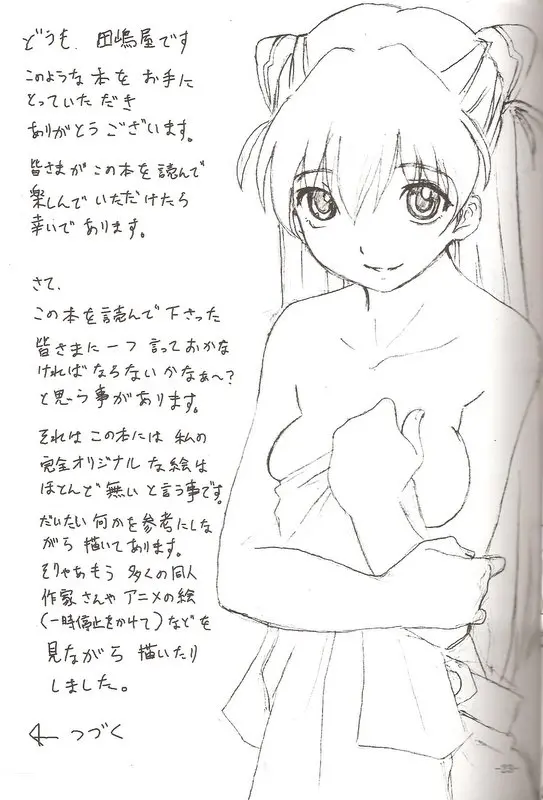 どうも、田嶋屋です
このような本をお手に
とっていただき
ありがとうございます。
皆さまがこの本を読んで
楽しんでいただけたら
幸いであります。
さて、
この本を読んで下さった
皆さまに一つ言っておかな
ければならないかなぁ〜?
と思う事があります。
それはこの本には私の
完全オリジナルな絵は
ほとんど無いと言う事です。
だいたい何かを参考にしな
がら描いてあります。
そりゃあもう多くの同人
作家さんやアニメの絵
(一時停止をかけて)などを
見ながら描いたり
しました。
← つづく
-23-